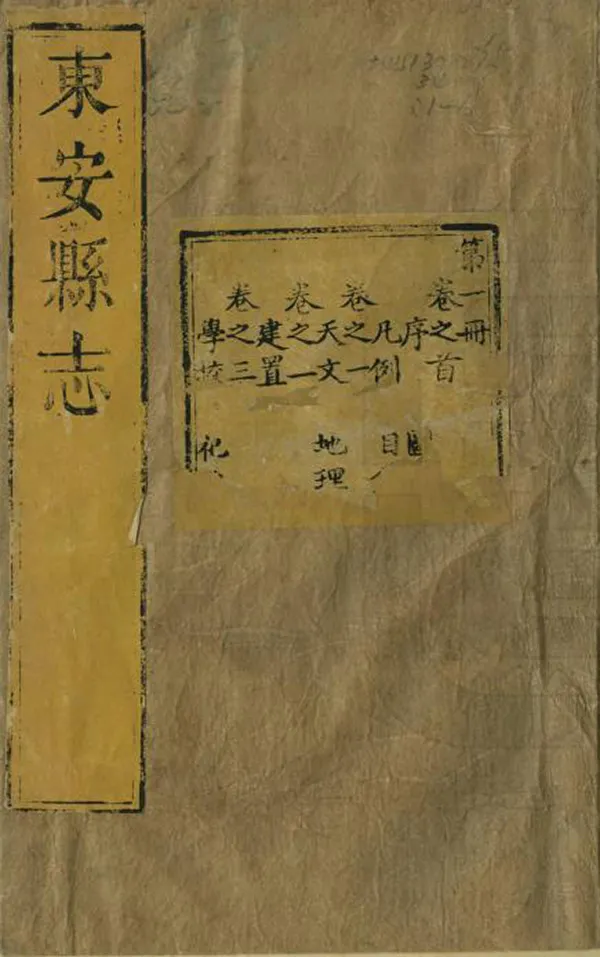 東安縣志
第一冊
卷之首
序 圖
凡例 目
卷之一
天文 地理
卷之一
建置
卷之三
學校 祀